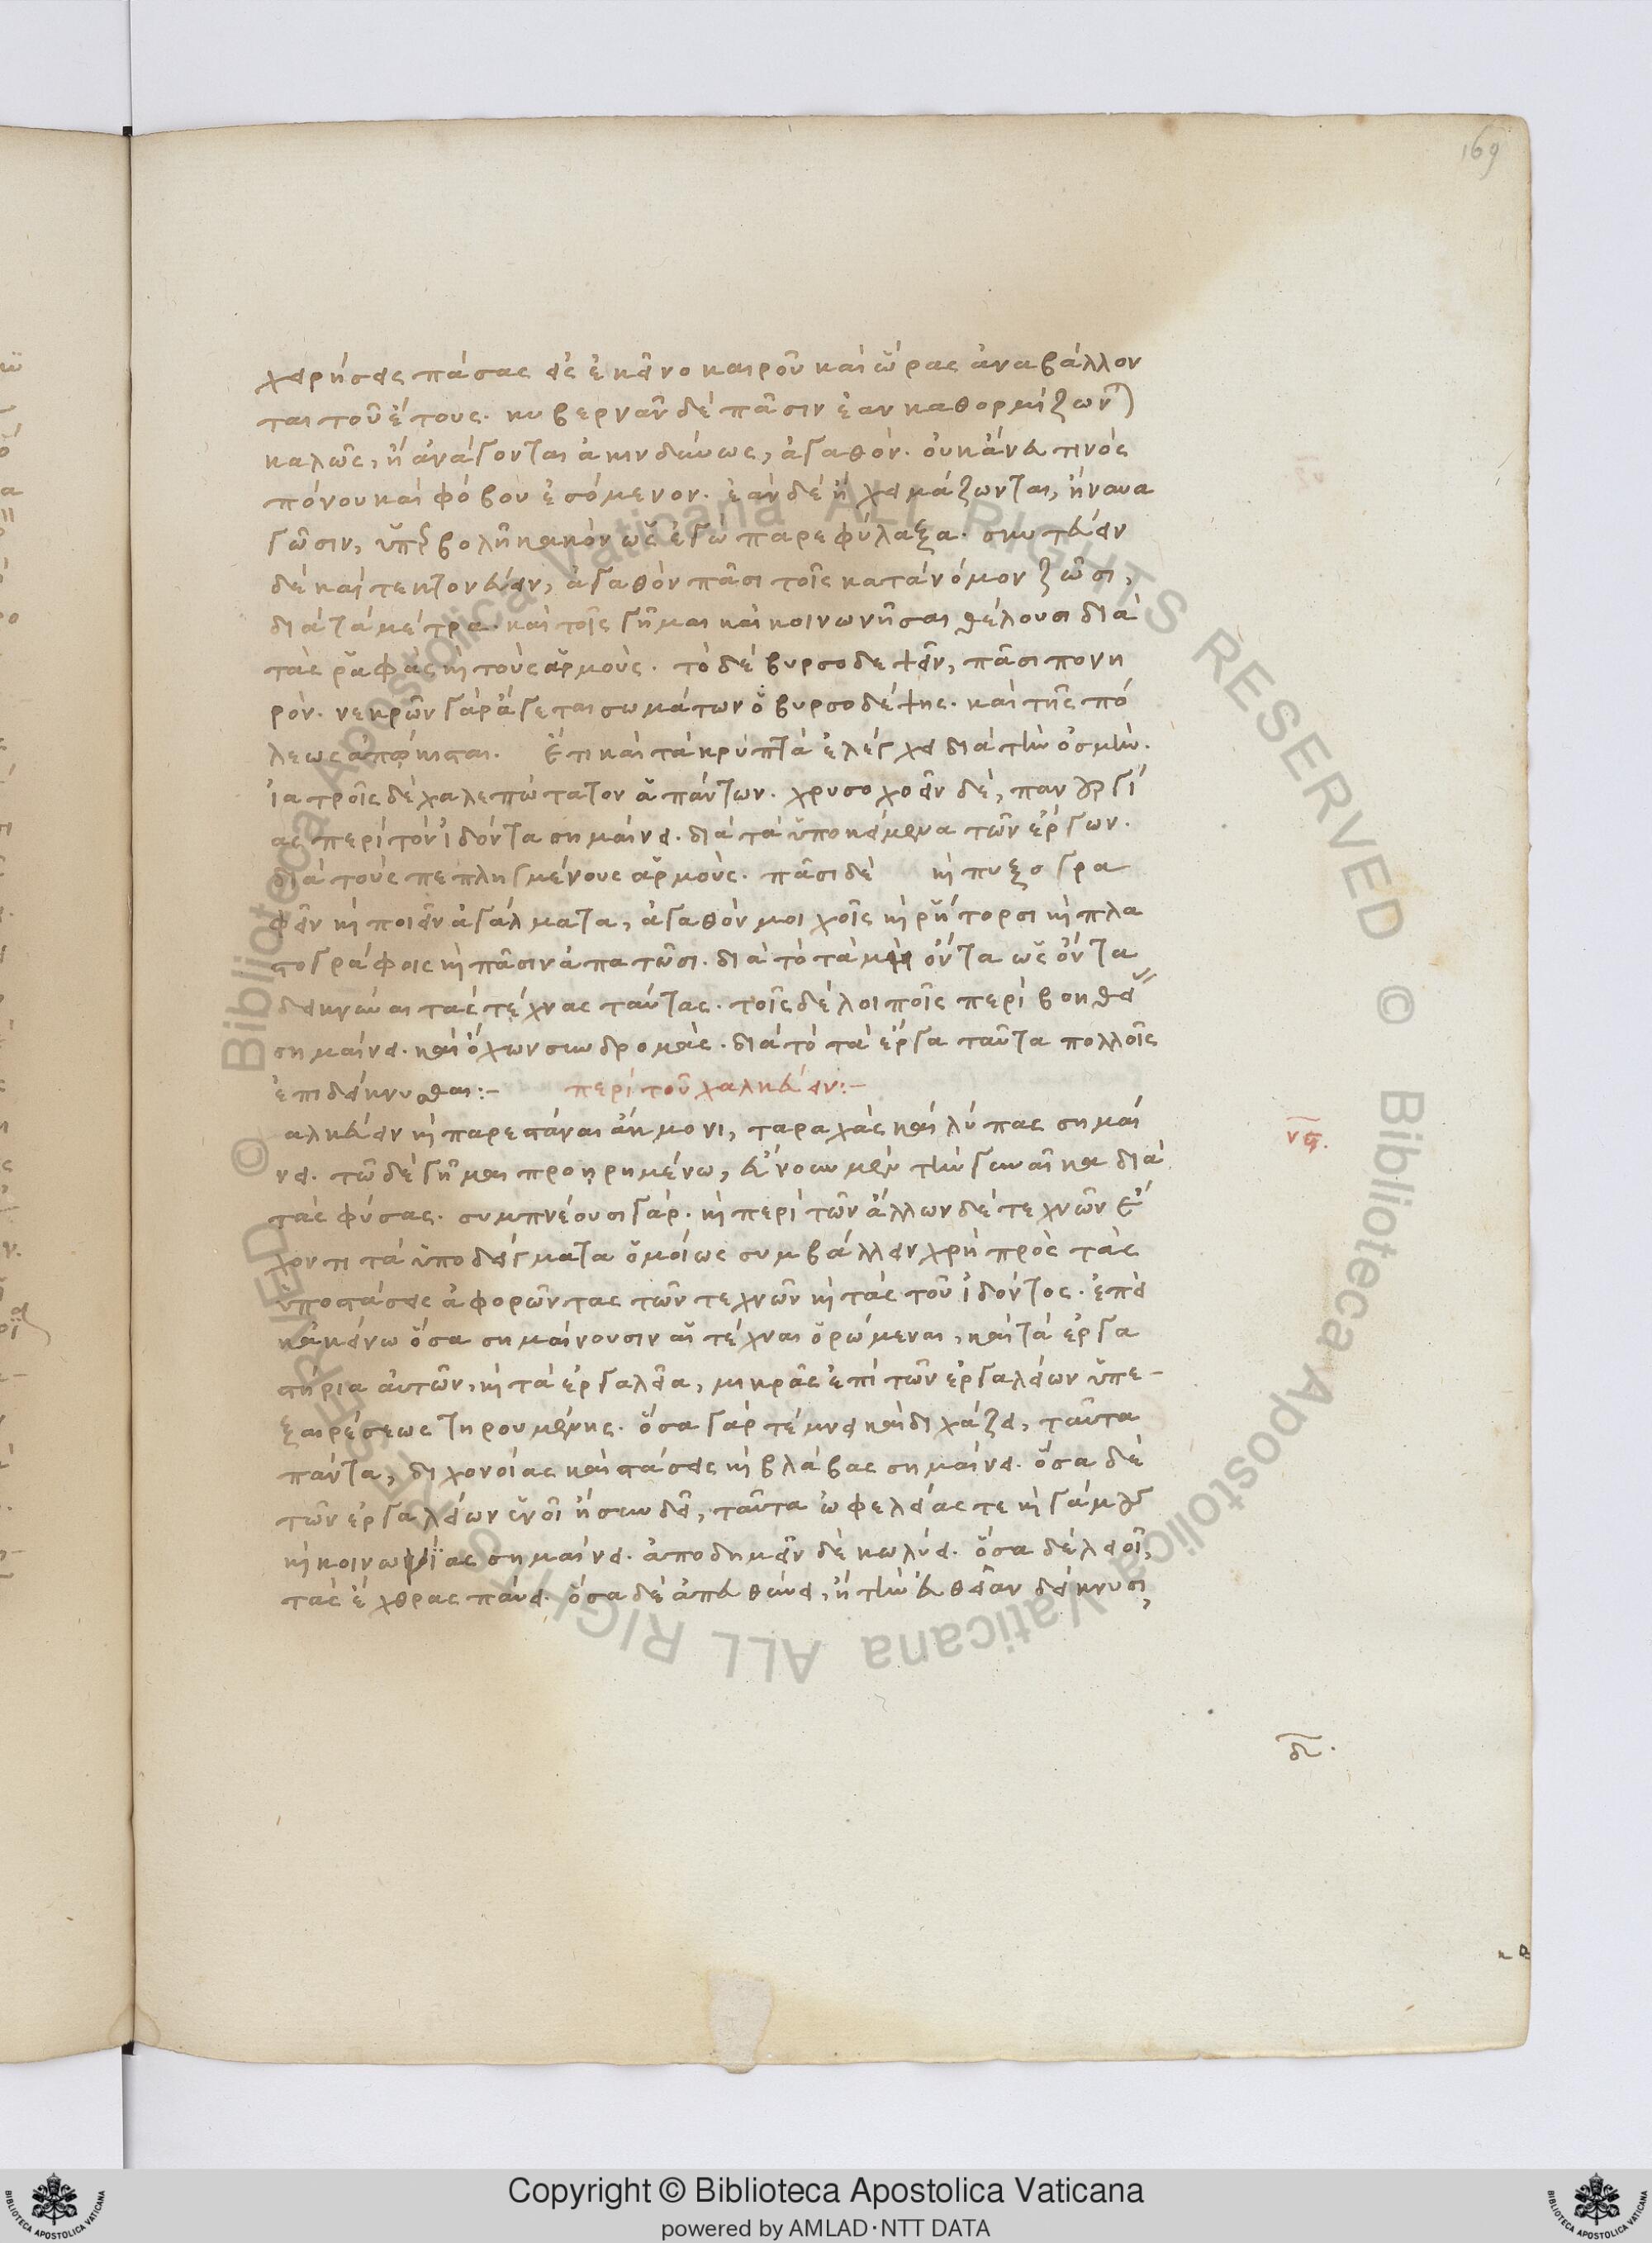 169
χειρήσεις πάσας εἰς ἐκεῖνο καιροῦ καὶ ὥρας ἀναβάλλον
ται τοῦ ἔτους. κυβερνᾶν δὲ πᾶσιν ἐὰν καθορμίζων
καλῶς, ἢ ἀνάγονται ἀκινδύνως, ἀγαθόν. οὐκ ἄνευ τινὸς
πόνου καὶ φόβου ἐσόμενον. ἐὰν δὲ ἢ χειμάζωνται, ἢ ναυα
γῶσιν, ὑπερβολῆ κακὸν ὡς ἐγὼ παρεφύλαξα. σκυτεύειν
δὲ καὶ τεκτονεύειν, ἀγαθὸν πᾶσι τοῖς κατὰ νόμον ζῶσι,
διὰ τὰ μέτρα. καὶ τοῖς γῆμαι καὶ κοινωνῆσαι θέλουσι διὰ
τὰς ῥαφὰς καὶ τοὺς ἁρμούς. τὸ δὲ βυρσοδεψεῖν, πᾶσι πονη
ρόν. νεκρῶν γὰρ ἅγεται σωμάτων ὁ βυρσοδέψης. καὶ τῆς πό
λεως ἀπῴκισται. ἔτι καὶ τὰ κρυπτὰ ἐλέγχει διὰ τὴν ὀσμήν.
ἰατροῖς δὲ χαλεπώτατον ἁπάντων. χρυσοχοεῖν δὲ, πανουργί
ας περὶ τὸν ἰδόντα σημαίνει. διὰ τὰ ὑποκείμενα τῶν ἔργων.
διὰ τοὺς πεπλησμένους ἁρμούς. πᾶσι δὲ καὶ πυξογρα
φεῖν καὶ ποιεῖν ἀγάλματα, ἀγαθὸν μοιχοῖς καὶ ῥήτορσι καὶ πλα
στογράφοις καὶ πᾶσιν ἀπατῶσι. διὰ τὸ τὰ μὴ ὄντα ὡς ὄντα
δεικνύναι τὰς τέχνας ταύτας. τοῖς δὲ λοιποῖς περὶ βοηθεί
σημαίνει. καὶ ὄχλων συνδρομὰς. διὰ τὸ τὰ ἔργα ταῦτα πολλοῖς
ἐπιδείκνυσθαι:– περὶ τοῦ χαλκεύειν:–
αλκεύειν καὶ παρεστάναι ἄκμονι, ταραχὰς καὶ λύπας σημαί
νει. τῷ δὲ γῆμαι προῃρημένω, εὔνουν μὲν τὴν γυναῖκα διὰ
τὰς φύσας. συμπνέουσι γάρ. καὶ περὶ τῶν ἄλλων δὲ τεχνῶν ἔ
χοντι τὰ ὑποδείγματα ὁμοίως συμβάλλειν χρὴ πρὸς τὰς
ὑποστάσεις ἀφορῶντας τῶν τεχνῶν καὶ τὰς τοῦ ἰδόντος. ἐπεὶ
κἀκείνω ὅσα σημαίνουσιν αἱ τέχναι ὁρώμεναι, καὶ τὰ ἐργα
στήρια αὐτῶν, καὶ τὰ ἐργαλεῖα, μικρᾶς ἐπὶ τῶν ἐργαλείων ὑπε-
ξαιρέσεως τηρουμένης. ὅσα γὰρ τέμνει καὶ διχάζει, ταῦτα
πάντα, διχονοίας καὶ στάσεις καὶ βλάβας σημαίνει. ὅσα δὲ
τῶν ἐργαλείων ἑνοῖ ἢ συνδεῖ, ταῦτα ὠφελείας τε καὶ γάμους
καὶ κοινωνίας σημαίνει. ἀποδημεῖν δὲ κωλύει. ὅσα δὲ λειοῖ,
τὰς ἔχθρας παύει. ὅσα δὲ ἀπευθύνει, ἢ τὴν εὐθεῖαν δείκνυσι,
νϛ.